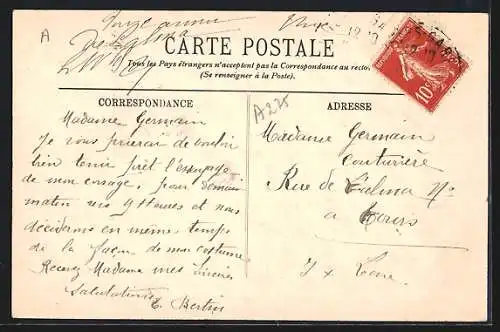 A
CARTE POSTALE
Tous les Pays étrangers n'acceptent pas la Correspondance au recto.
(Se renseigner à la Poste).
10c
CORRESPONDANCE
A235
ADRESSE
Madame Germain
Je vous prierai de vouloir
bien tenir prêt l'essayage
de mon corsage, pour demain
matin vers 9 Heures et nous
déciderons en même temps
de la façon de mon costume
Recevez Madame mes sincères
Salutations
E. Bertin
Madame Germain
Couturière
Rue de No
a Tours
I x Loire